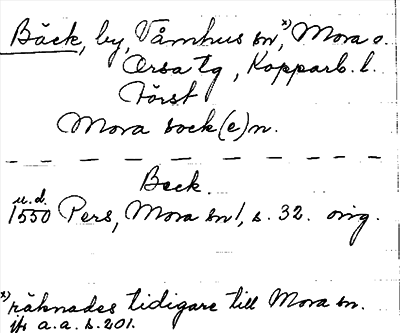 Bäck, by, Våmhus sn,x) Mora o.
Orsa tg, Kopparb. l.
Först
Mora sock(e)n.
Beck.
u.d.
1550 Pers, Mora sn 1, s. 32. orig.
x) räknades tidigare till Mora sn.
jfr a.a. s. 201.